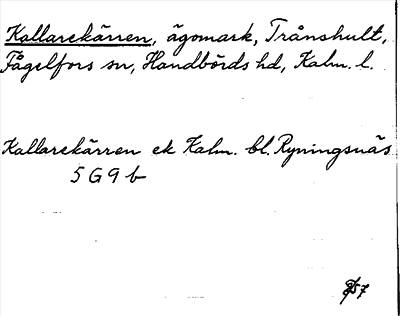 Kallarekärren, ägomark, Trånshult,
Fågelfors sn, Handbörds hd, Kalm. l.
Kallarekärren ek Kalm. bl. Ryningsnäs
5 G 9 b
57